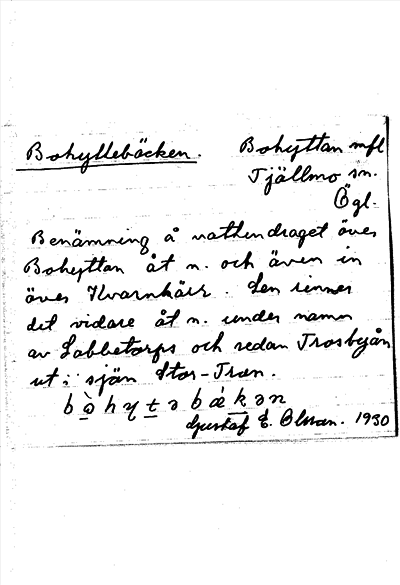 Bohyttebäcken. Bohyttan mfl
Tjällmo sn.
Ögl.
Benämning å vattendraget över
Bohyttan åt n. och även in
över Kvarnkärr. Sen rinner
det vidare åt n. under namn
av Labbetorps och sedan Trosbyån
ut i sjön Stor-Tron.
Gustaf E. Olsson. 1930